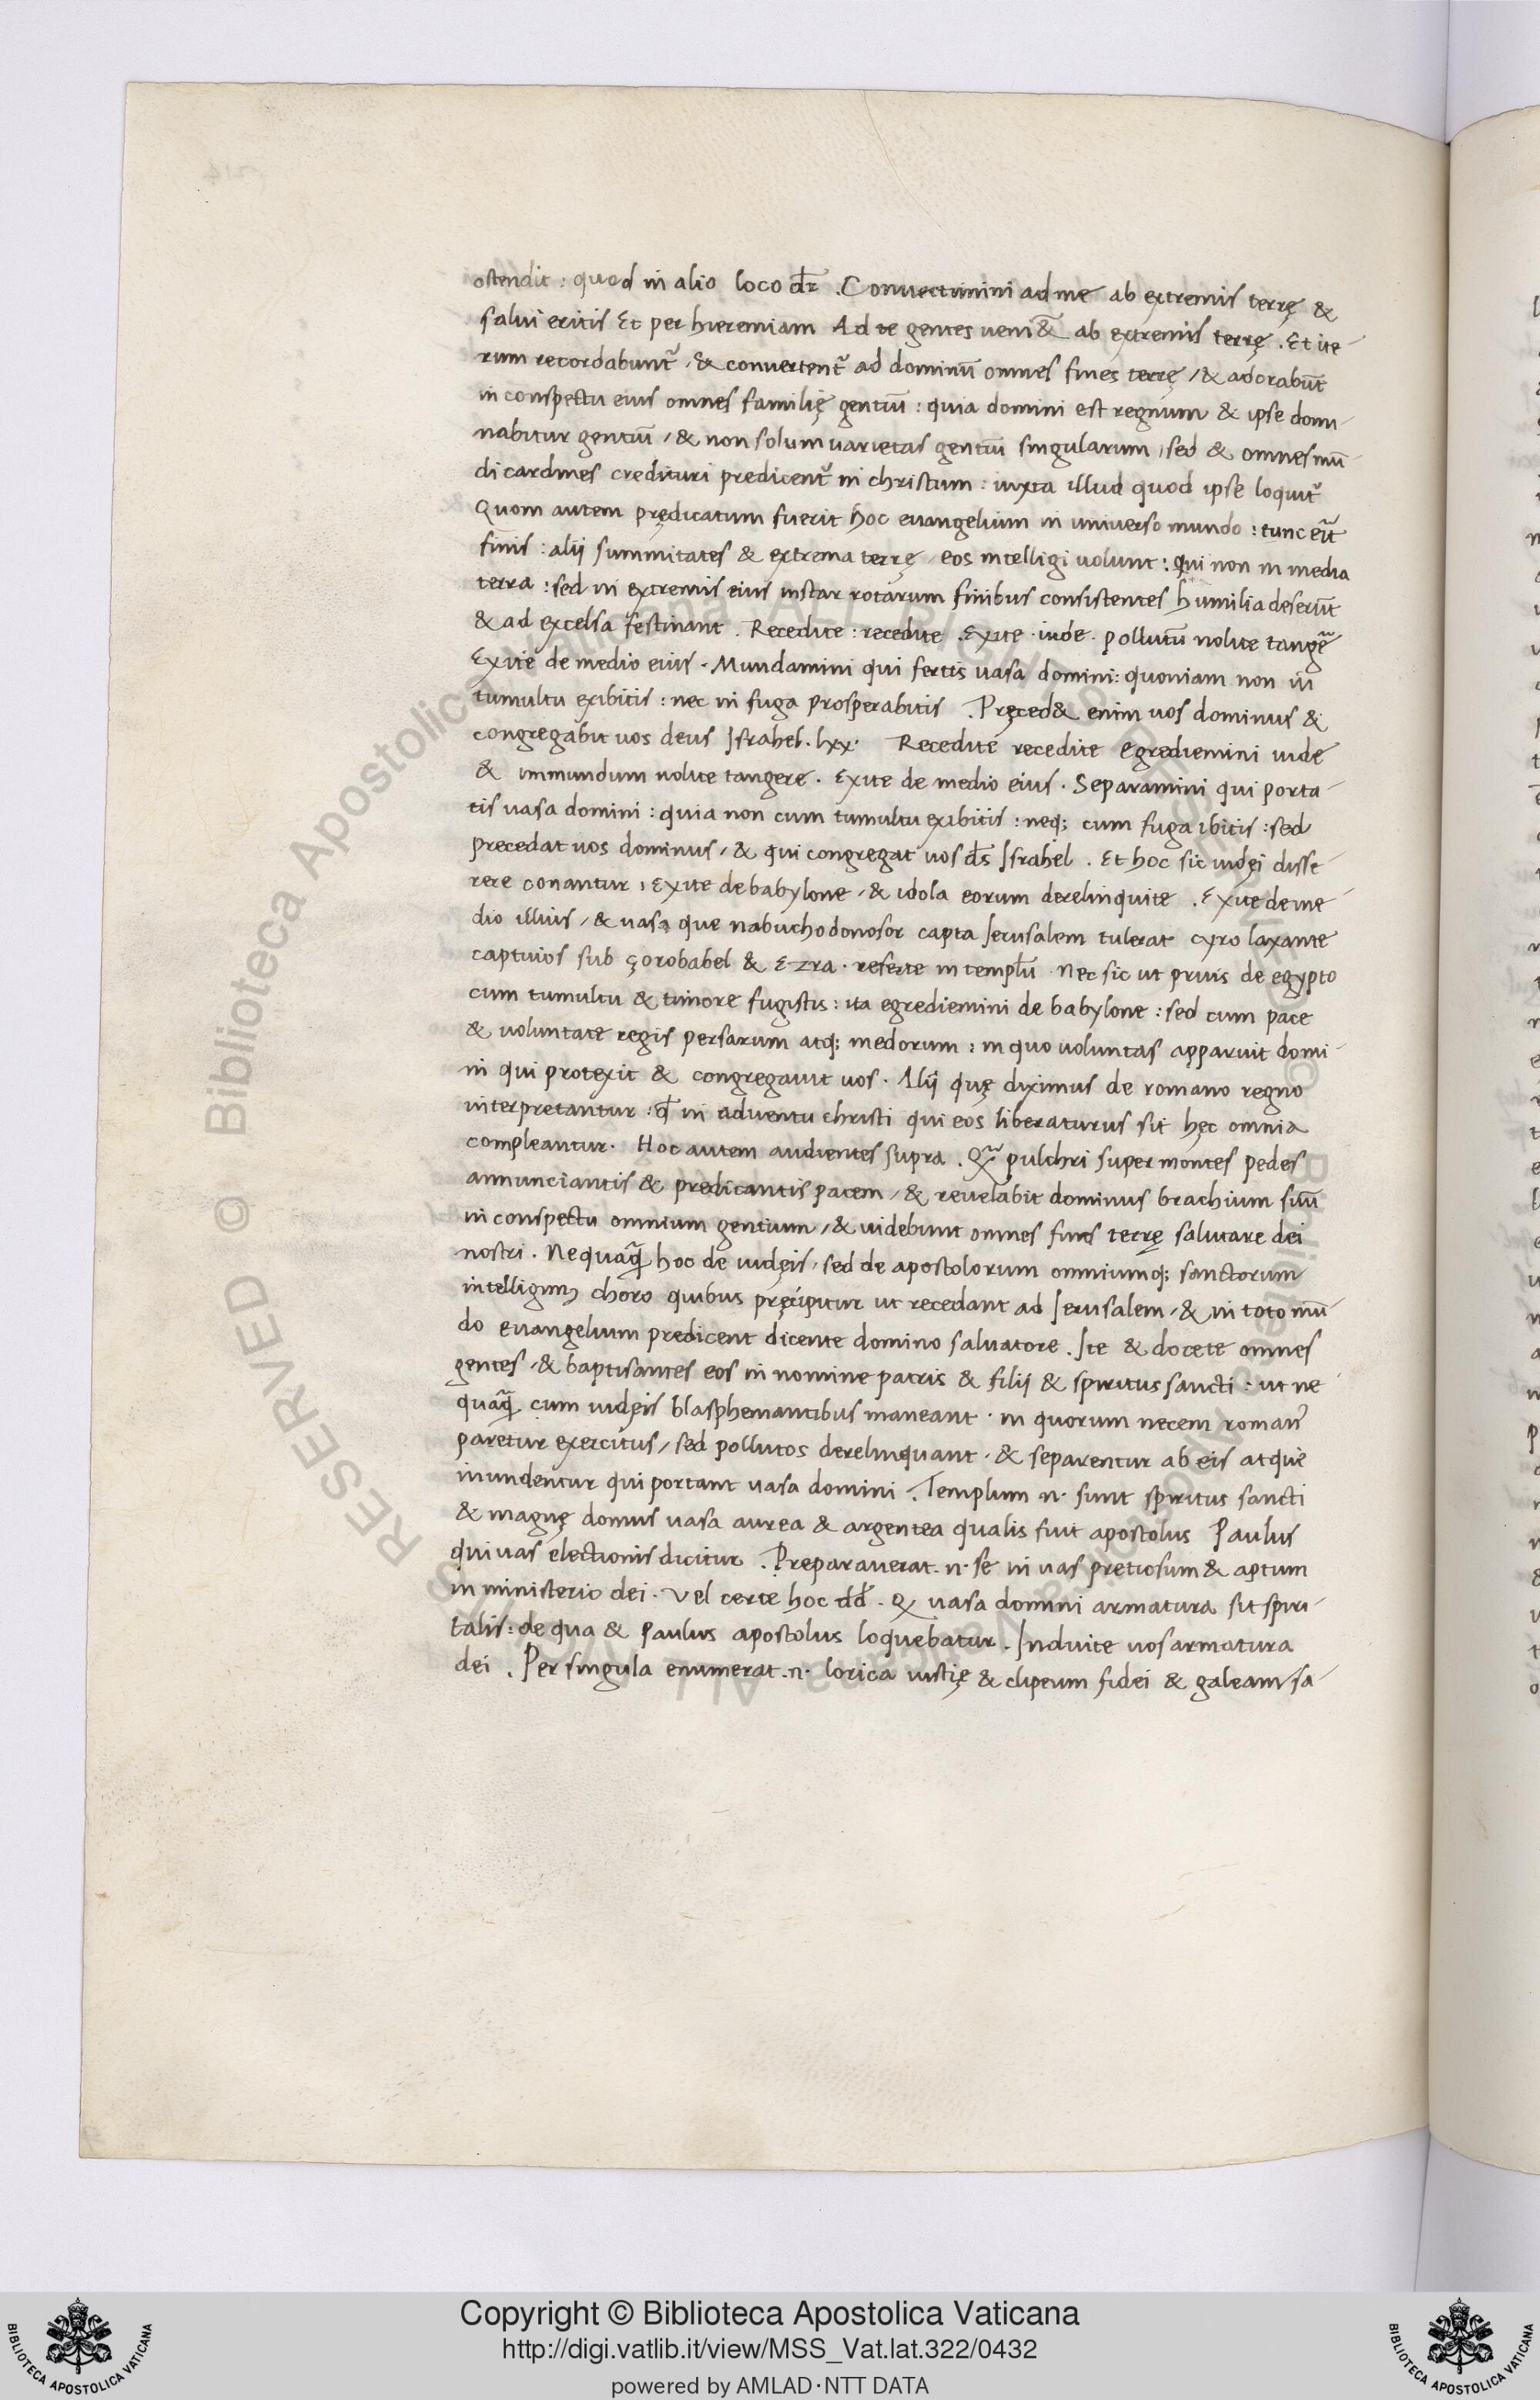 ostendit : quod in alio loco dr̄ . Convertimini ad me ab extremis terrę &
salui eritis Et per hieremiam Ad te gentes ueni&̄ ab extremis terrę . Et ite
rum recordabunt᷑ / & conuertent᷑ ad dominū omnes fines terrę / & adorabūt
in conspectu eius omnes familię gentiū : quia domini est regnum & ipse domi
nabitur gentiū / & non solum uarietas gentiū singularum , sed & omnes mū
di cardines credituri predicent᷑ in christum : iuxta illud quod ipse loquit᷑
Quom autem prędicatum fuerit hoc euangelium in universo mundo : tunc erit
finis : alij summitates & extrema terrę eos intelligi uolunt : qui non in media
terra : sed in extremis eius instar rotarum finibus consistentes humilia deserūt
& ad excelsa festinant . Recedite : recedite . Exite inde . pollutū nolite tangē
Exite de medio eius . Mundamini qui fertis uasa domini : quoniam non in
tumultu exibitis : nec in fuga prosperabitis . Pręced& enim uos dominus &
congregabit uos deus Israhel . lxx . Recedite recedite egrediemini inde
& immundum nolite tangere . Exite de medio eius . Separamini qui porta
tis uasa domini : quia non cum tumultu exibitis : neq; cum fuga ibitis : sed
precedat uos dominus / & qui congregat uos ds̄ Israhel . Et hoc sic iudęi disse
rere conantur : Exite de babylone / & idola eorum derelinquite . Exite de me
dio illius / & uasa que nabuchodonosor capta Ierusalem tulerat cyro laxante
captiuos sub çorobabel & Ezra . referte in templū . Nec sic ut prius de egypto
cum tumultu & timore fugistis : ita egrediemini de babylone : sed cum pace
& uoluntate regis persarum atq; medorum : in quo uoluntas apparuit domi
ni qui protexit & congregauit uos . Alij quę diximus de romano regno
interpretantur : qđ in adventu christi qui eos liberaturus sit hęc omnia
compleantur . Hoc autem audientes supra . Qm̄ pulchri super montes pedes
annunciantis & predicantis pacem / & reuelabit dominus brachium suū
in conspectu omnium gentium / & uidebunt omnes fines terrę salutare dei
nostri . Nequaq̄ hoc de iudęis / sed de apostolorum omniumq; sanctorum
intelligimꝰ choro quibus pręcipitur ut recedant ad Ierusalem / & in toto mū
do euangelium predicent dicente domino saluatore . Ite & docete omnes
gentes / & baptisantes eos in nomine patris & filij & spiritus sancti : ut ne
quaq̄ cum iudęis blasphemantibus maneant . in quorum necem roman᷒
paretur exercitus / sed pollutos derelinquant . & separentur ab eis atque
mundentur qui portant uasa domini . Templum .n. sunt spiritus sancti
& magnę domus uasa aurea & argentea qualis fuit apostolus Paulus
qui uas electionis dicitur . Preparauerat .n. se in uas pretiosum & aptum
in ministerio dei . Vel certe hoc dđ . Q uasa domini armatura sit spiri
talis : de qua & Paulus apostolus loquebatur . Induite uos armatura
dei . Per singula enumerat .n. lorica iustię & clipeum fidei & galeam sa
Copyright © Biblioteca Apostolica Vaticana
http://digi.vatlib.it/view/MSS_Vat.lat.322/0432
powered by AMLAD·NTT DATA